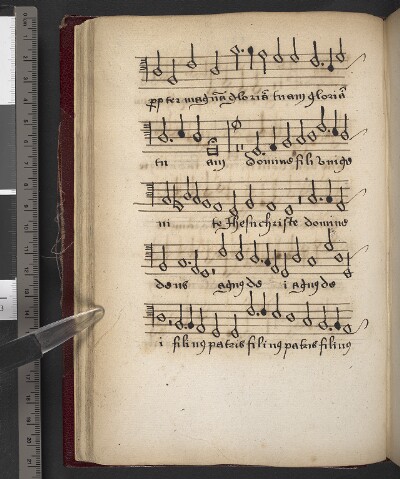 pp ter magnā gloriā tuam gloriā
tu am Domine fili unige
ni te Jhesu christe domine
deus agnus de i agnus de
i filius patris filius patris filius